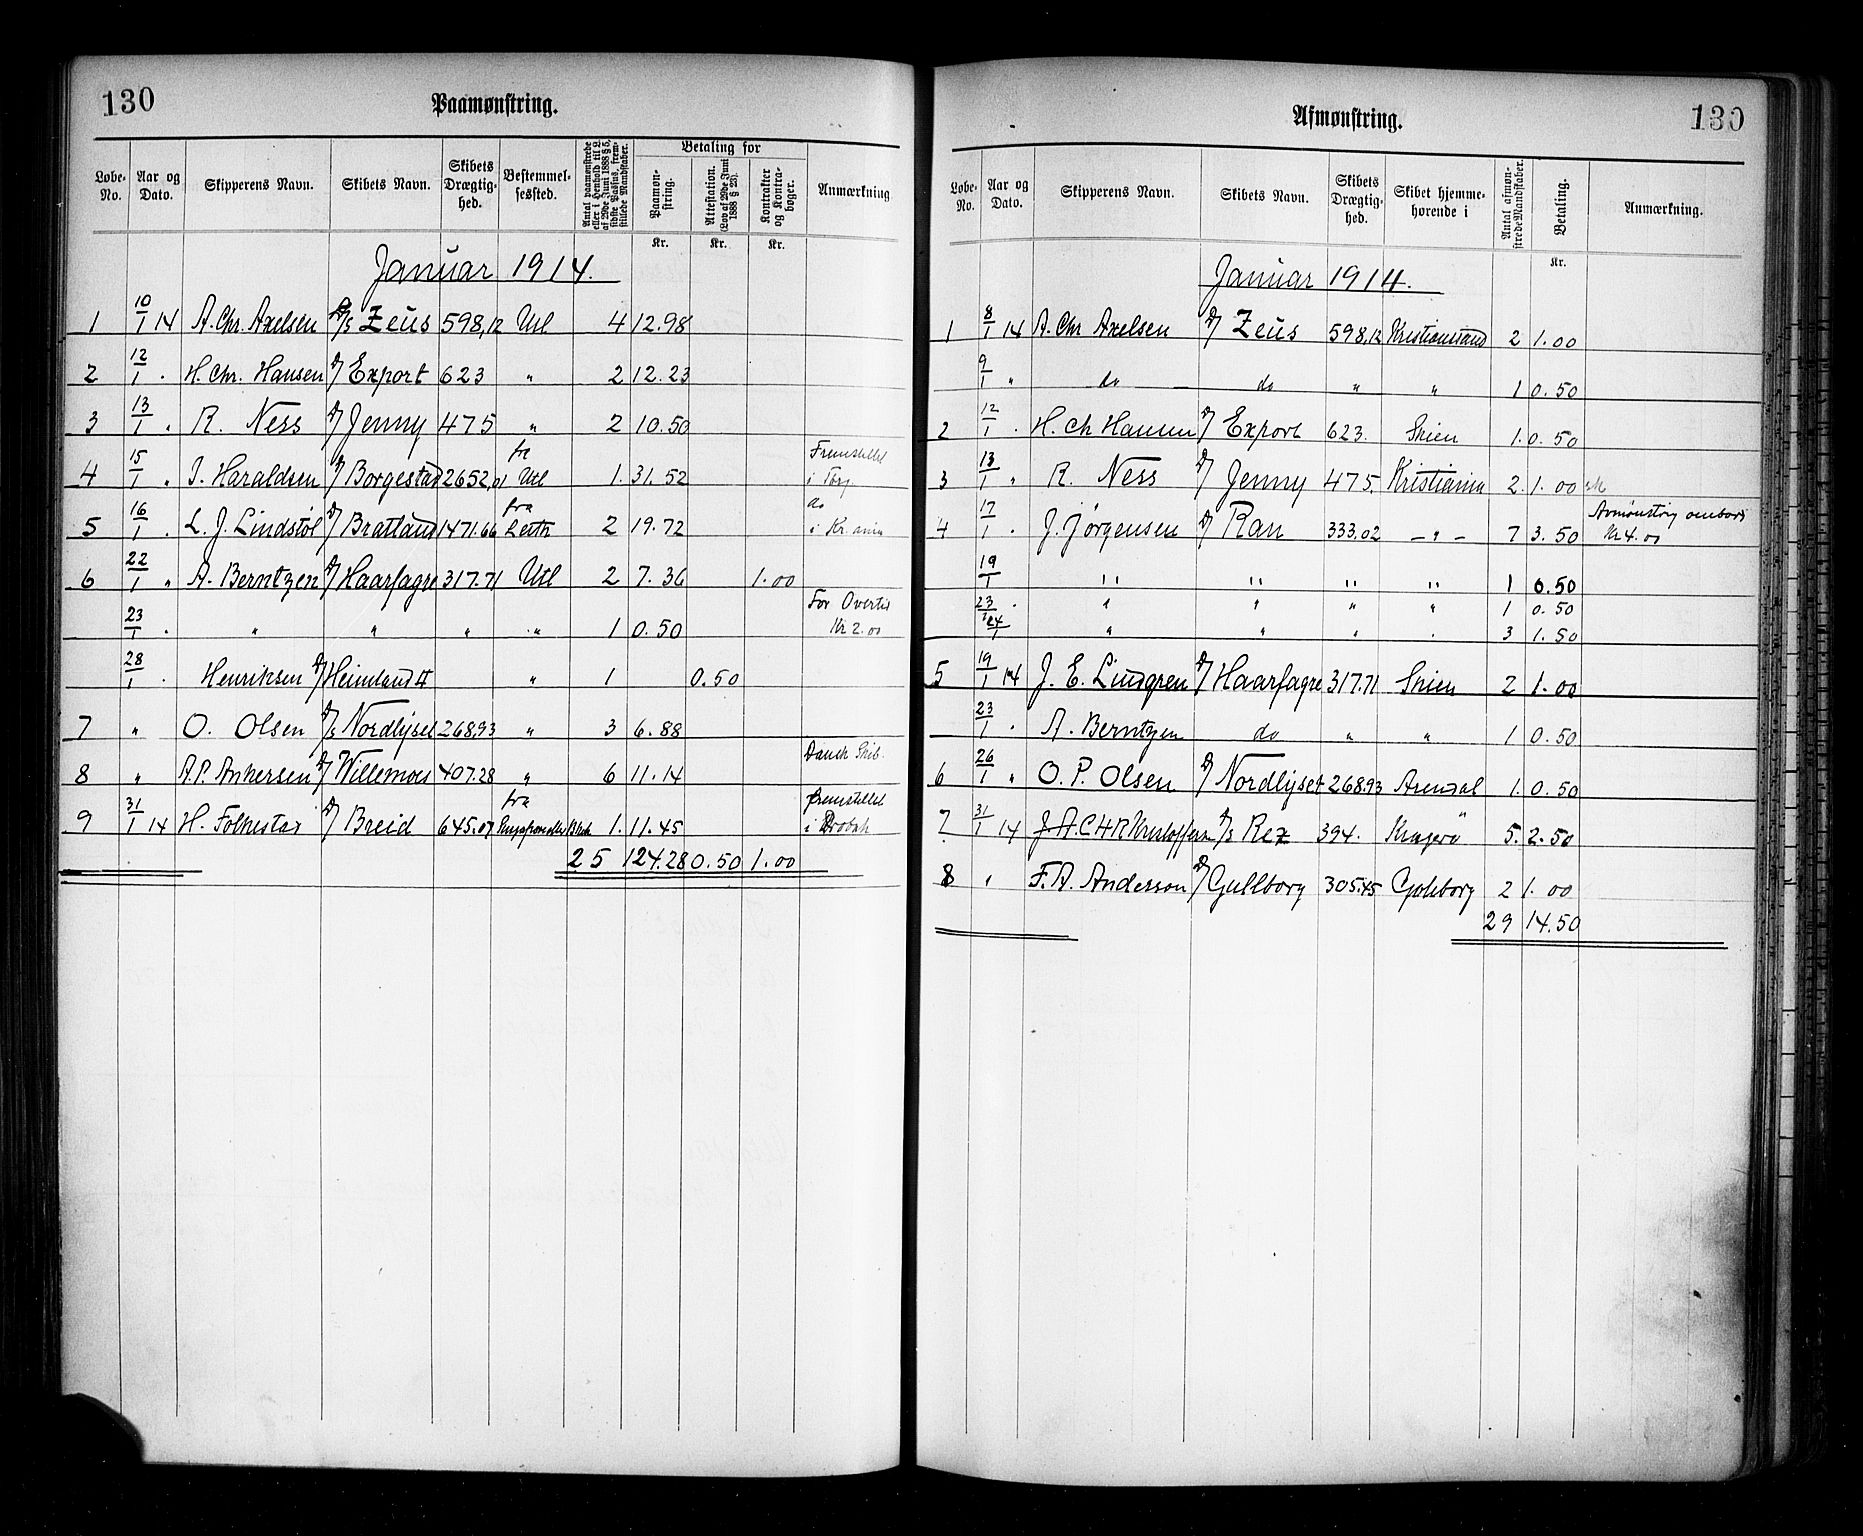 130 Paamønstring.
Løbe-No. | Aar og Dato. | Skipperens Navn. | Skibets Navn. | Skibets Drægtig-hed. | Bestemmel-sessted. | Antal paamønstrede eller i Henhold til L. af 29de Juni 1888 § 5, sidste Passus, frem-stillede Mandskaber. | Betaling for | Paamøn-string. | Attestation. (Lov af 29de Juni 1888 § 23). | Kontrakter og Kontra-bøger. | Anmærkning
Kr. Kr. Kr.
Januar 1914.
1 10/1 14 A. Chr. Axelsen D/S Zeus 598,12 Utl 4 12.98
2 12/1 . H. Chr. Hansen D/ Export 623 " 2 12.23
3 13/1 . R. Ness D/ Jenny 475 " 2 10.50
4 15/1 " J. Haraldsen D/ Borgestad 2652,01 fra Utl 1. 31.52 Fremstillet i
5 16/1 . L. J. Lindstøl D/ Bratland 1471.66 fra Leith 2 19.72 do i Kr.ania
6 22/1 " A. Berntzen D/ Haarfagre 317.71 Utl 2 7.36 1.00
23/1 . " " " " 1 0.50 For Overtid Kr 2.00
28/1 . Henriksen D/ Heimland II " 1 0.50
7 " O. Olsen D/S Nordlyset 268,93 " 3 6.88
8 " A. P. Ankersen D/ Willemoes 407.28 " 6 11.14 Dansk Skib.
9 31/1 14 H. Folkestad D/ Breid 645.07 fra 1. 11.45 fremstillet i Drøbak
25 124.28 0.50 1.00
Afmønstring. 130
Løbe-No. | Aar og Dato. | Skipperens Navn. | Skibets Navn. | Skibets Drægtig-hed. | Skibet hjemme-hørende i | Antal afmøn-strede Mandskaber. | Betaling. | Anmærkning.
Kr.
Januar 1914.
1 8/1 14 A. Chr Axelsen D/ Zeus 598,12 Kristianssand 2 1.00
9/1 " do do " " 1 0.50
2 12/1 . H. Ch Hansen D/ Export 623. Skien 1. 0.50
3 13/1 " R. Ness D/ Jenny 475. Kristiania 2. 1.00
4 17/1 . J. Jørgensen D/ Ran 333.02 — " — 7 3.50 Avmønstrig ombord Kr 4.00
19/1 " " " " 1 0.50
23/1 . " " " " 1 0.50
24/1 " " " . 3 1.50
5 19/1 14 J. E. Lindgren D/ Haarfagre 317.71 Skien 2 1.00
23/1 . A. Berntzen do " " 1 0.50
6 26/1 " O. P. Olsen D/ Nordlyset 268.93 Arendal 1. 0.50
7 31/1 14 J. A. C H R Kristoffersen D/S Rex 394. Kragerø 5. 2.50
8 " F. A. Anderson D/ Gullborg 305.45 Goteborg 2 1.00
29 14.50